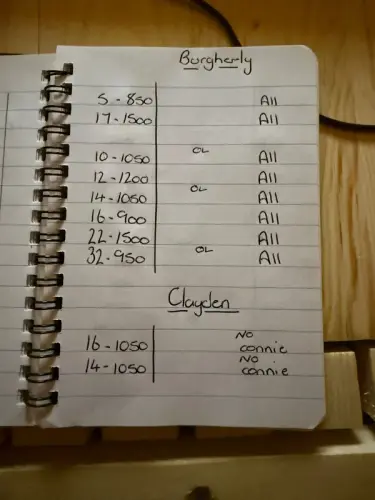 Burgherly
5 - 850 All
17 - 1500 All
10 - 1050 OL All
12 - 1200 All
14 - 1050 OL All
16 - 900 All
22 - 1500 All
32 - 950 OL All
Clayden
16 - 1050 No connie
14 - 1050 No connie